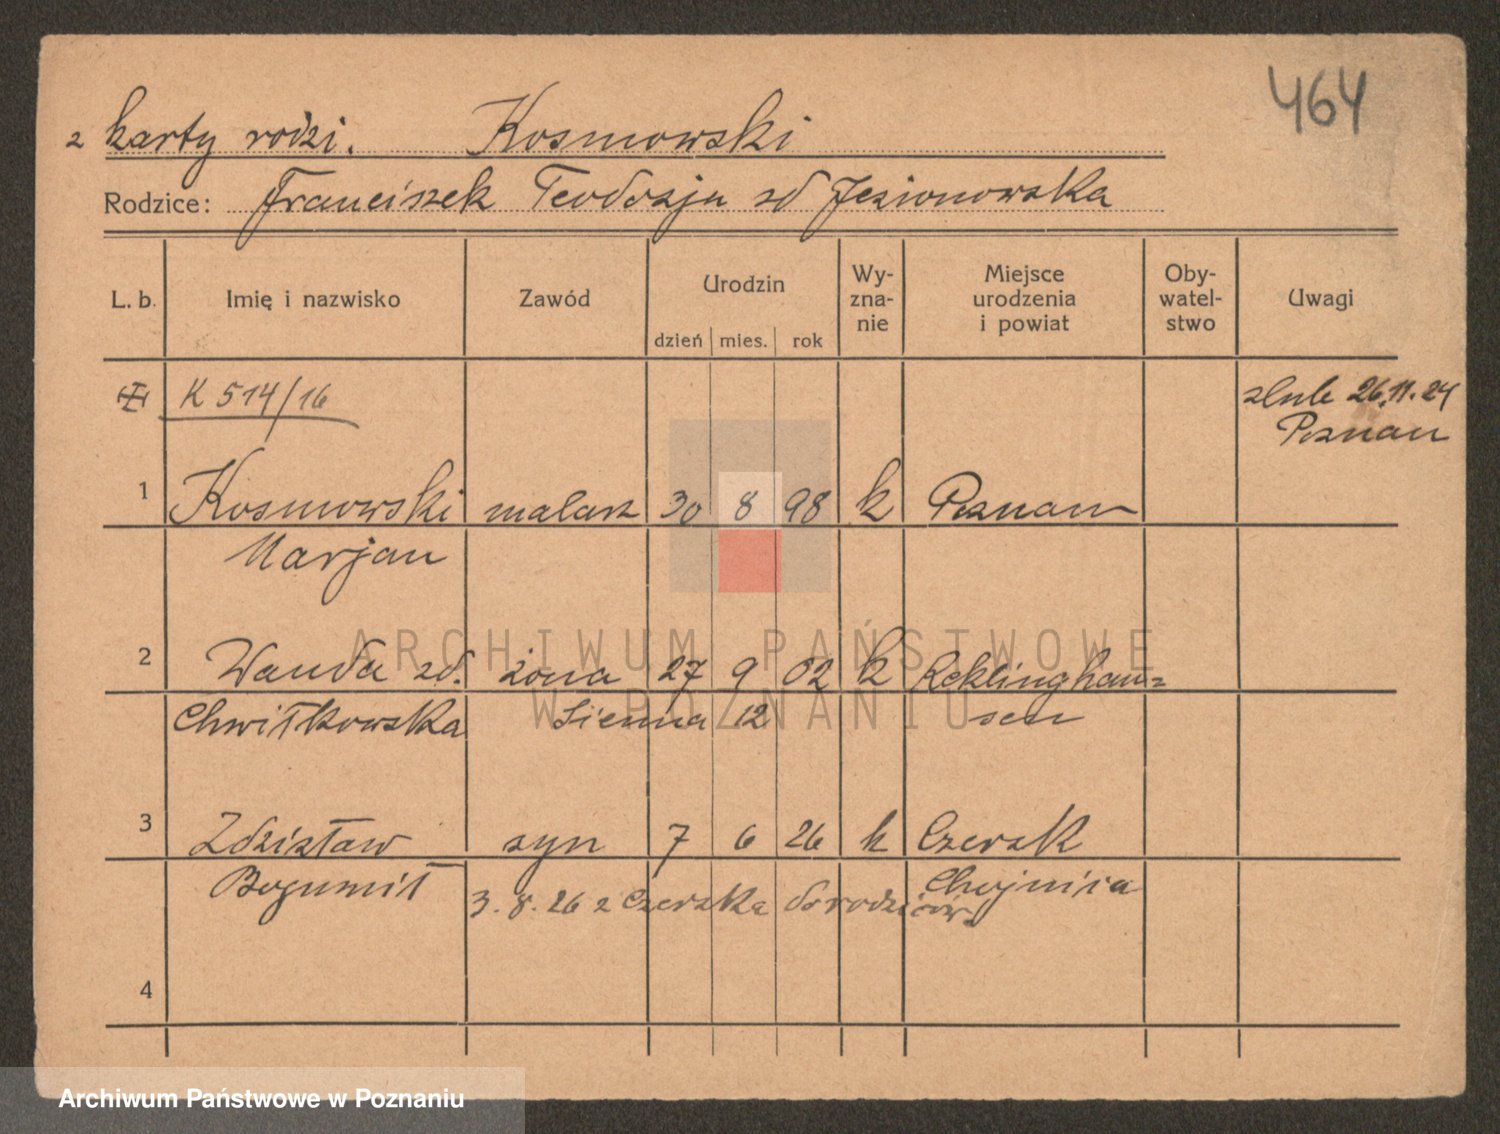 464
z karty rodzi. Kosmowski
Rodzice: Franciszek Teodozja zd Jezionowska
L. b. Imię i nazwisko Zawód Urodzin dzień mies. rok Wy-zna-nie Miejsce urodzenia i powiat Oby-watel-stwo Uwagi
K 514/16 ślub 26.11.24
Poznan
1 Kosmowski malarz 30 8 98 k Poznan
Marjan
2 Wanda zd. żona 27 9 02 k Reklinghau=
Chwiłkowska Sienna 12 sen
3 Zdzisław syn 7 6 26 k Czersk
Bogumił Chojnica
3. 8. 26 z Czerska do rodziców
4
ARCHIWUM PAŃSTWOWE
W POZNANIU
Archiwum Państwowe w Poznaniu